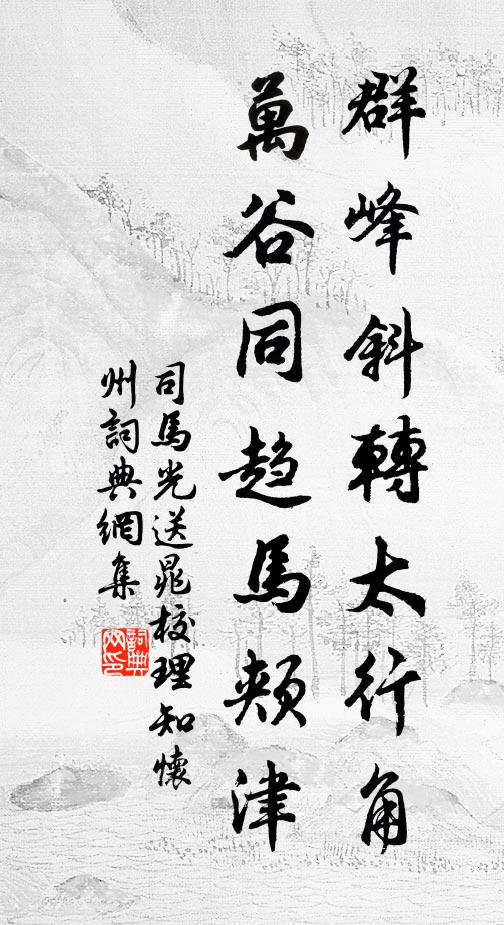 群峰斜轉太行角
萬谷同趨馬頰津
司馬光送晁校理知懷
州詞典網集
詞典網印